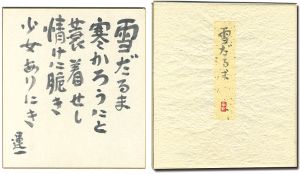 雪だるま
寒かろうにと
蓑着せし
情けに脆き
少女ありにき
蓮一
雪だるま